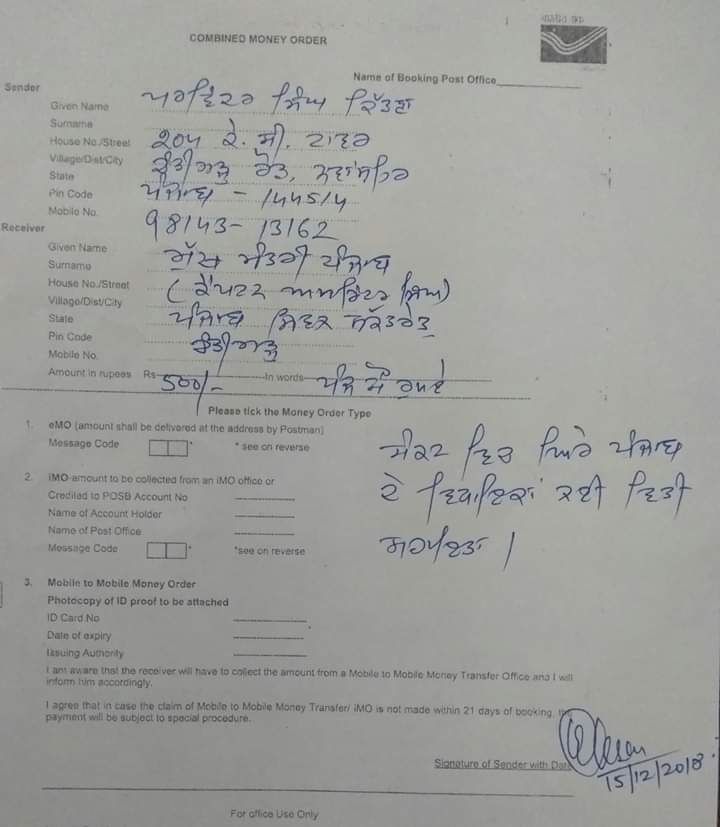 COMBINED MONEY ORDER
Name of Booking Post Office
Sender
Given Name ਪਰਵਿੰਦਰ ਸਿੰਘ ਕਿੱਤਣਾ
Surname
House No./Street 205 ਕੇ. ਸੀ. ਟਾਵਰ
Village/Dist/City ਚੰਡੀਗੜ੍ਹ ਰੋਡ, ਨਵਾਂਸ਼ਹਿਰ
State
Pin Code ਪੰਜਾਬ - 144514
Mobile No. 98143-13162
Receiver
Given Name ਮੁੱਖ ਮੰਤਰੀ ਪੰਜਾਬ
Surname
House No./Street (ਕੈਪਟਨ ਅਮਰਿੰਦਰ ਸਿੰਘ)
Village/Dist/City
State ਪੰਜਾਬ ਸਿਵਲ ਸਕੱਤਰੇਤ
Pin Code ਚੰਡੀਗੜ੍ਹ
Mobile No.
Amount in rupees Rs 500/- In words ਪੰਜ ਸੌ ਰੁਪਏ
Please tick the Money Order Type
1. eMO (amount shall be delivered at the address by Postman)
Message Code * * see on reverse
2. iMO-amount to be collected from an iMO office or
Credited to POSB Account No
Name of Account Holder
Name of Post Office
Message Code * *see on reverse
ਸੰਕਟ ਵਿਚ ਘਿਰੇ ਪੰਜਾਬ
ਦੇ ਵਿਧਾਇਕਾਂ ਲਈ ਵਿੱਤੀ
ਸਹਾਇਤਾ ।
3. Mobile to Mobile Money Order
Photocopy of ID proof to be attached
ID Card No
Date of expiry
Issuing Authority
I am aware that the receiver will have to collect the amount from a Mobile to Mobile Money Transfer Office and I will
inform him accordingly.
I agree that in case the claim of Mobile to Mobile Money Transfer/ iMO is not made within 21 days of booking, the
payment will be subject to special procedure.
Signature of Sender with Date
15/12/2018
For office Use Only